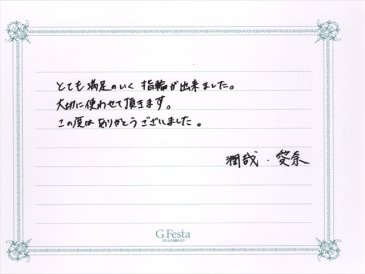 とても満足のいく指輪が出来ました。
大切に使わせて頂きます。
この度はありがとうございました。
潤哉・愛奈
G.Festa
DIAMOND